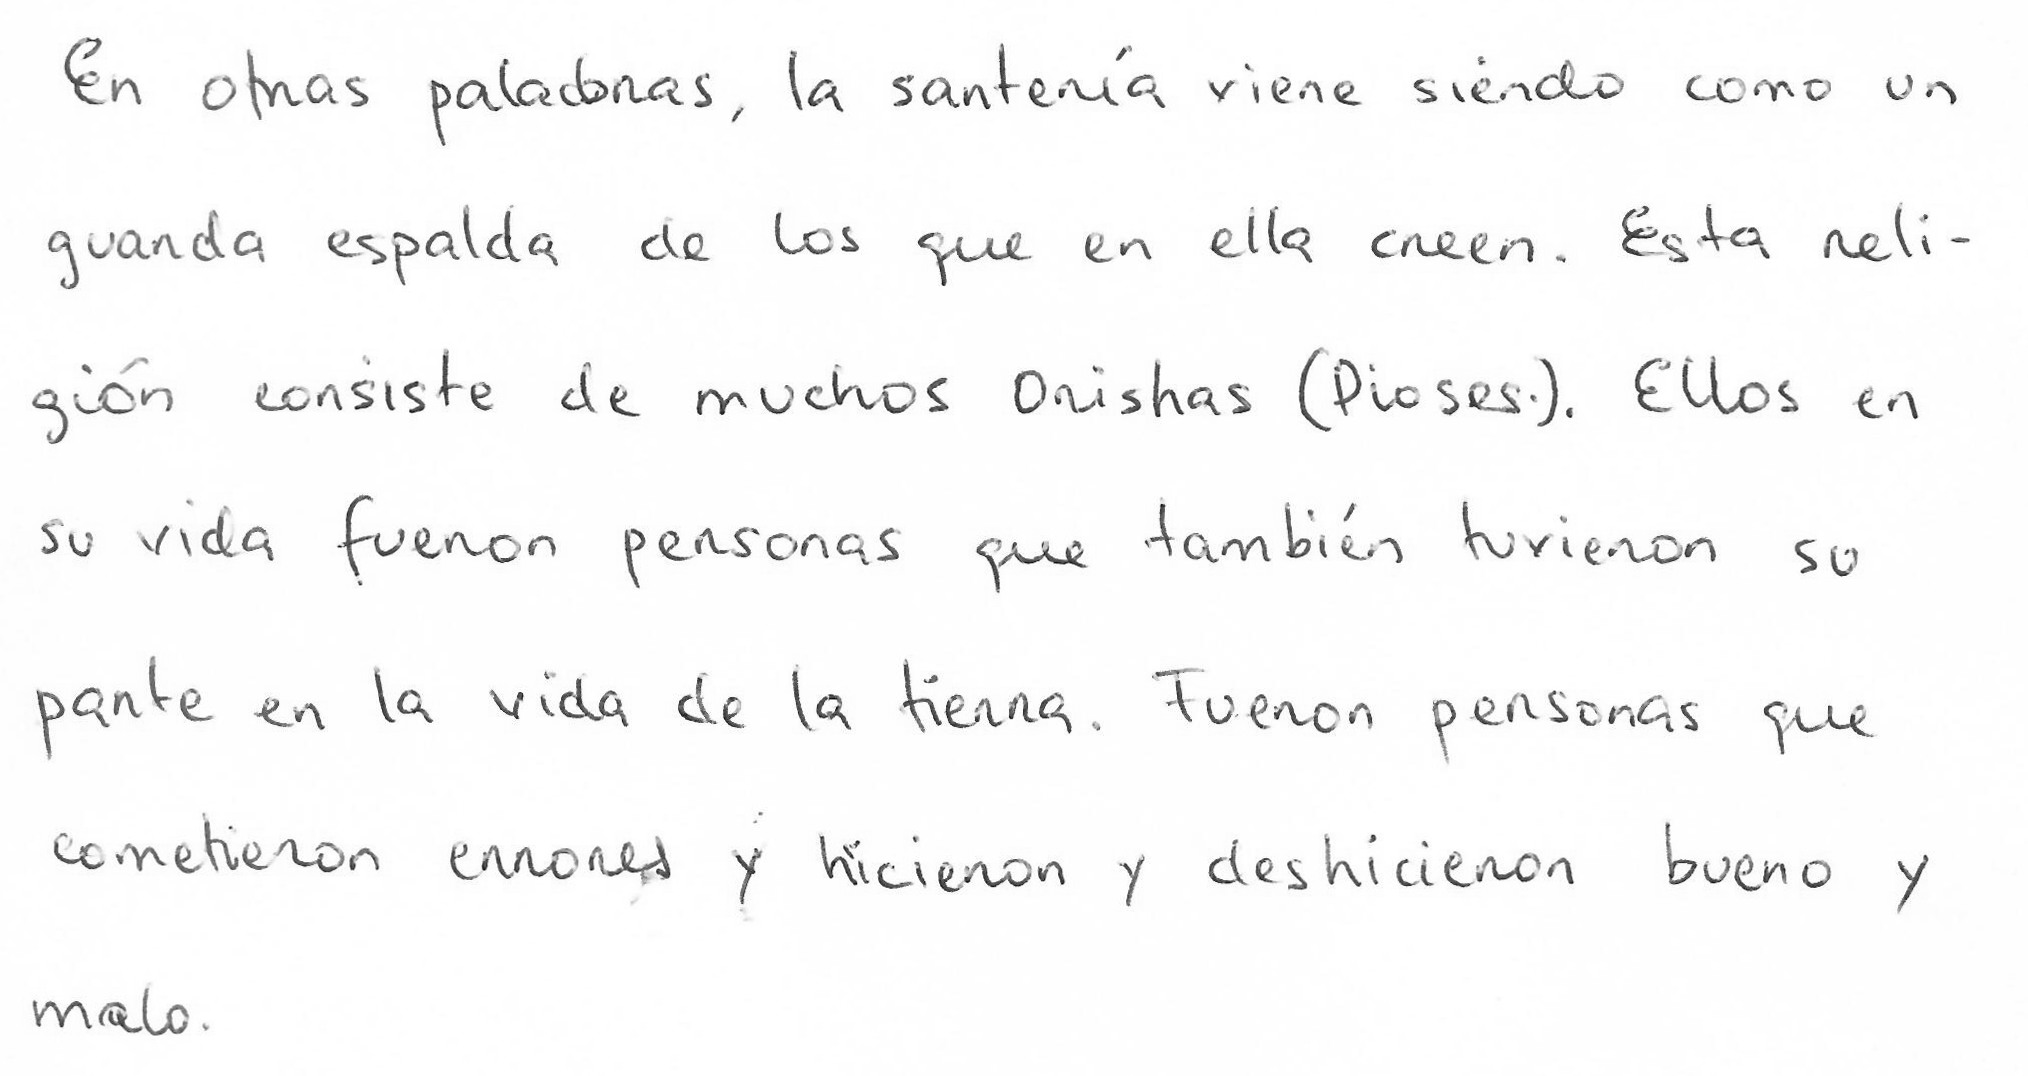 En otras paladbras, la santería viene siendo como un
guarda espalda de los que en ella creen. Esta reli-
gión consiste de muchos Orishas (Dioses.). Ellos en
su vida fueron personas que también tuvieron su
parte en la vida de la tierra. Fueron personas que
cometieron errores y hicieron y deshicieron bueno y
malo.